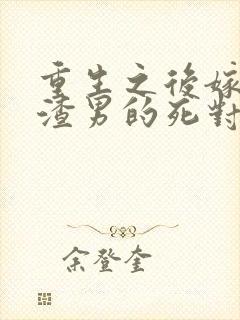 重生之後嫁
渣男的死對
余登奎